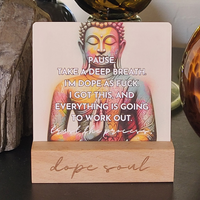 PAUSE.
TAKE A DEEP BREATH.
I'M DOPE AS FUCK.
I GOT THIS, AND
EVERYTHING IS GOING
TO WORK OUT.
trust the process.
dope soul